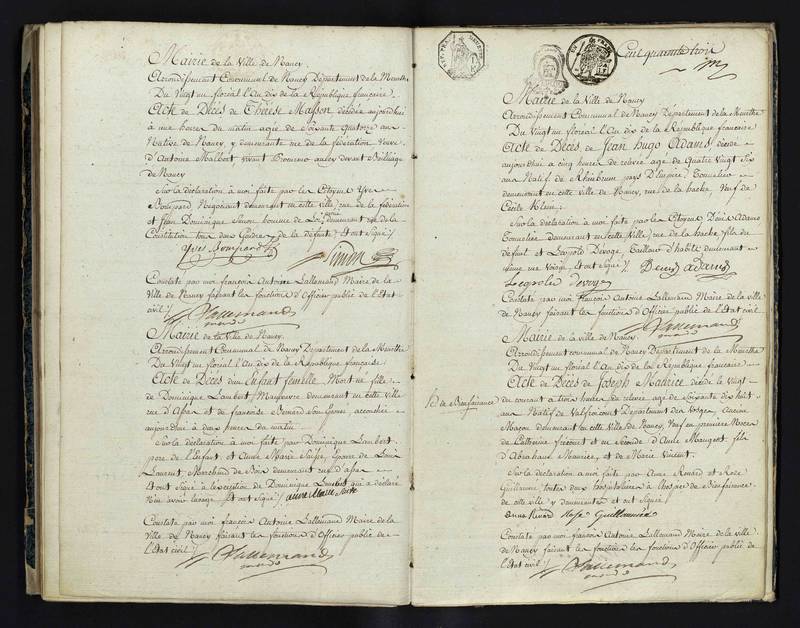 Mairie de la Ville de Nancy.
Arrondissement Communal de Nancy Département de la Meurthe
Du Vingt un floréal l'An dix de la République française.
Acte de Décès de Thérèse Masson décédée aujourdhui
à une heure du matin agée de Soixante Quatorze ans
Native de Nancy, y demeurante rue de la fédération Veuve
d'Antoine Malbert vivant Procureur au ley devant Bailliage
de Nancy
Sur la déclaration à moi faite par le Citoyen Yve
Bompard Négociant demeurant en cette ville, rue de la fédération
et Jean Dominique Simon homme de Loi, demeurant rue de la
Constitution tous deux Gendres de la défunte, Et ont Signé
Yves Bompard
Simon
Constaté par moi françois Antoine Lallemand Maire de la
Ville de Nancy faisant les fonctions d'Officier public de l'Etat
civil
Lallemand
Mairie de la Ville de Nancy.
Arrondissement Communal de Nancy Département de la Meurthe
Du Vingt un floréal l'An dix de la République française
Acte de Décès d'un Enfant femelle Mort né fille
de Dominique Lambert Manoeuvre demeurant en cette ville
rue d'Aspa et de françoise Bernard Son Epouse accouchée
aujourdhui à deux heures du matin
Sur la déclaration à moi faite par Dominique Lambert
pere de l'Enfant et Anne Marie Epouse de Louis
Laurent, Marchand de Bois demeurant rue d'aspa
et ont Signé à l'exception de Dominique Lambert qui a déclaré
Ne Savoir lavage Et ont Signé anne Marie
Constaté par moi françois Antoine Lallemand Maire de la
Ville de Nancy faisant les fonctions d'Officier public de
l'Etat civil
Lallemand
Cent quarante trois
Mairie de la Ville de Nancy
Arrondissement Communal de Nancy Département de la Meurthe
Du Vingt un floréal l'An dix de la République française
Acte de Décès de Jean Hugo Adams décédé
aujourdhui à cinq heures de relevée agé de Quatre Vingt Six
ans Natif de Rhimbrum pays d'Empire, Tonnelier
demeurant en cette ville de Nancy, rue de la hache, Veuf de
Cécile Klein
Sur la déclaration à moi faite par les Citoyens Denis Adams
Tonnelier demeurant en cette Ville rue de la hache fils du
défunt et Léopold Devoge Tailleur d'habits demeurant
même rue Voisin, Et ont Signé Denis adams
Leopold Devoge
Constaté par moi françois Antoine Lallemand Maire de la ville
de Nancy faisant les fonctions d'Officier public de l'Etat civil
Lallemand
Mairie de la ville de Nancy.
Arrondissement communal de Nancy Département de la Meurthe
Du Vingt un floréal l'An dix de la République française
Acte de Décès de Joseph Maurice décédé le Vingt
H. de Bienfaisance
du courant à trois heures de relevée agé de Soixante dix huit
ans Natif de Valfroicourt Département des Vosges, ancien
Maçon demeurant en cette Ville de Nancy, Veuf en première Noces
de Catherine fricourt et en Seconde d'Anne Maugeot fils
d'Abraham Maurice, et de Marie Vincent.
Sur la déclaration à moi faite par Anne Renard et Rose
Guillemin toutes deux à hospice de Bienfaisance
de cette ville y demeurantes et ont Signé
anne Renard Rose Guillemin
Constaté par moi françois Antoine Lallemand Maire de la ville
de Nancy faisant les fonctions d'Officier public de
l'Etat civil
Lallemand